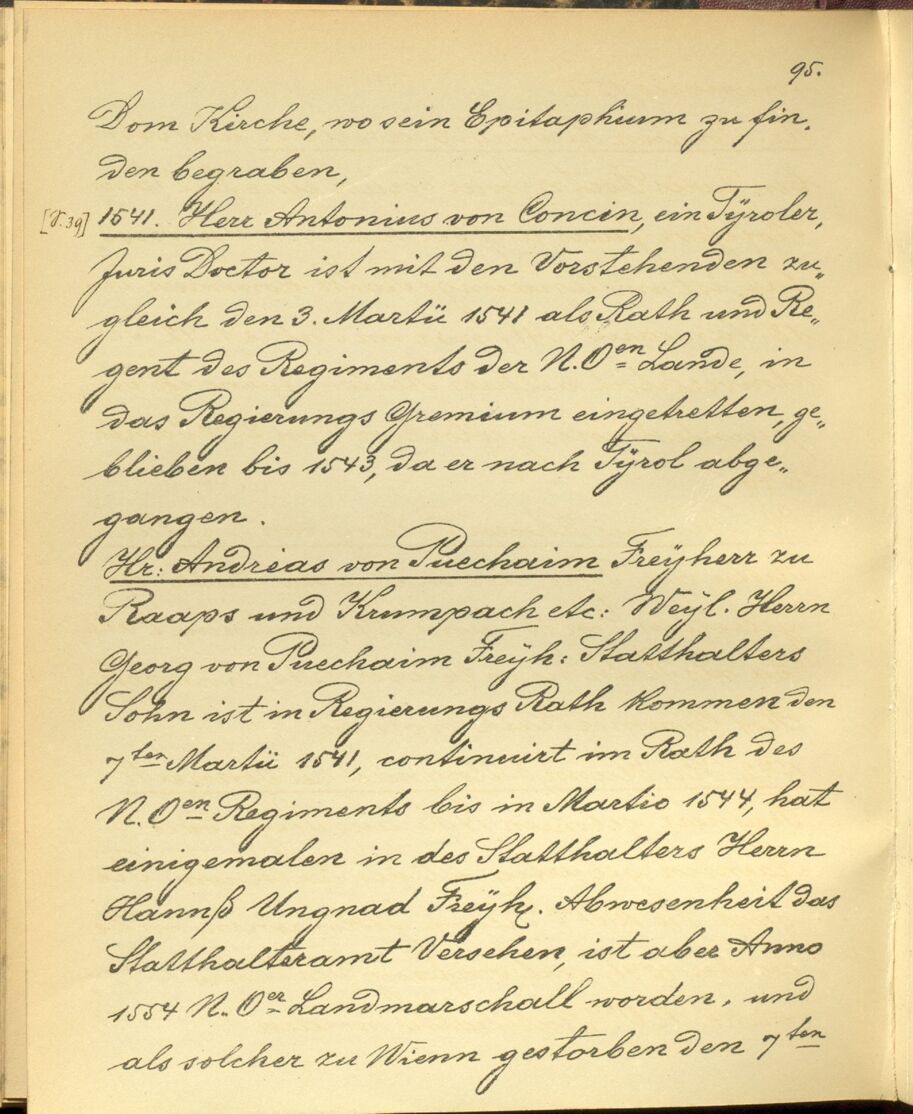 95.
Dom Kirche, wo sein Epitaphium zu fin„
den begraben,
[V. 39] 1541. Herr Antonius von Concin, ein Tÿroler,
Juris Doctor ist mit den Vorstehenden zu„
gleich den 3. Martii 1541 als Rath und Re„
gent des Regiments der N. Oen Lande, in
das Regierungs Gremium eingetretten, ge„
blieben bis 1543, da er nach Tÿrol abge„
gangen.
Hr: Andreas von Puechaim Freÿherr zu
Raaps und Krumpach etc: Weÿl. Herrn
Georg von Puechaim Freÿh: Statthalters
Sohn ist in Regierungs Rath kommen den
7ten Martii 1541, continuirt im Rath des
N. Oen Regiments bis in Martio 1544, hat
einigemalen in des Statthalters Herrn
Hannß Ungnad Freÿh. Abwesenheit das
Statthalteramt Versehen, ist aber Anno
1554 N. Oer Landmarschall worden, und
als solcher zu Wienn gestorben den 7ten